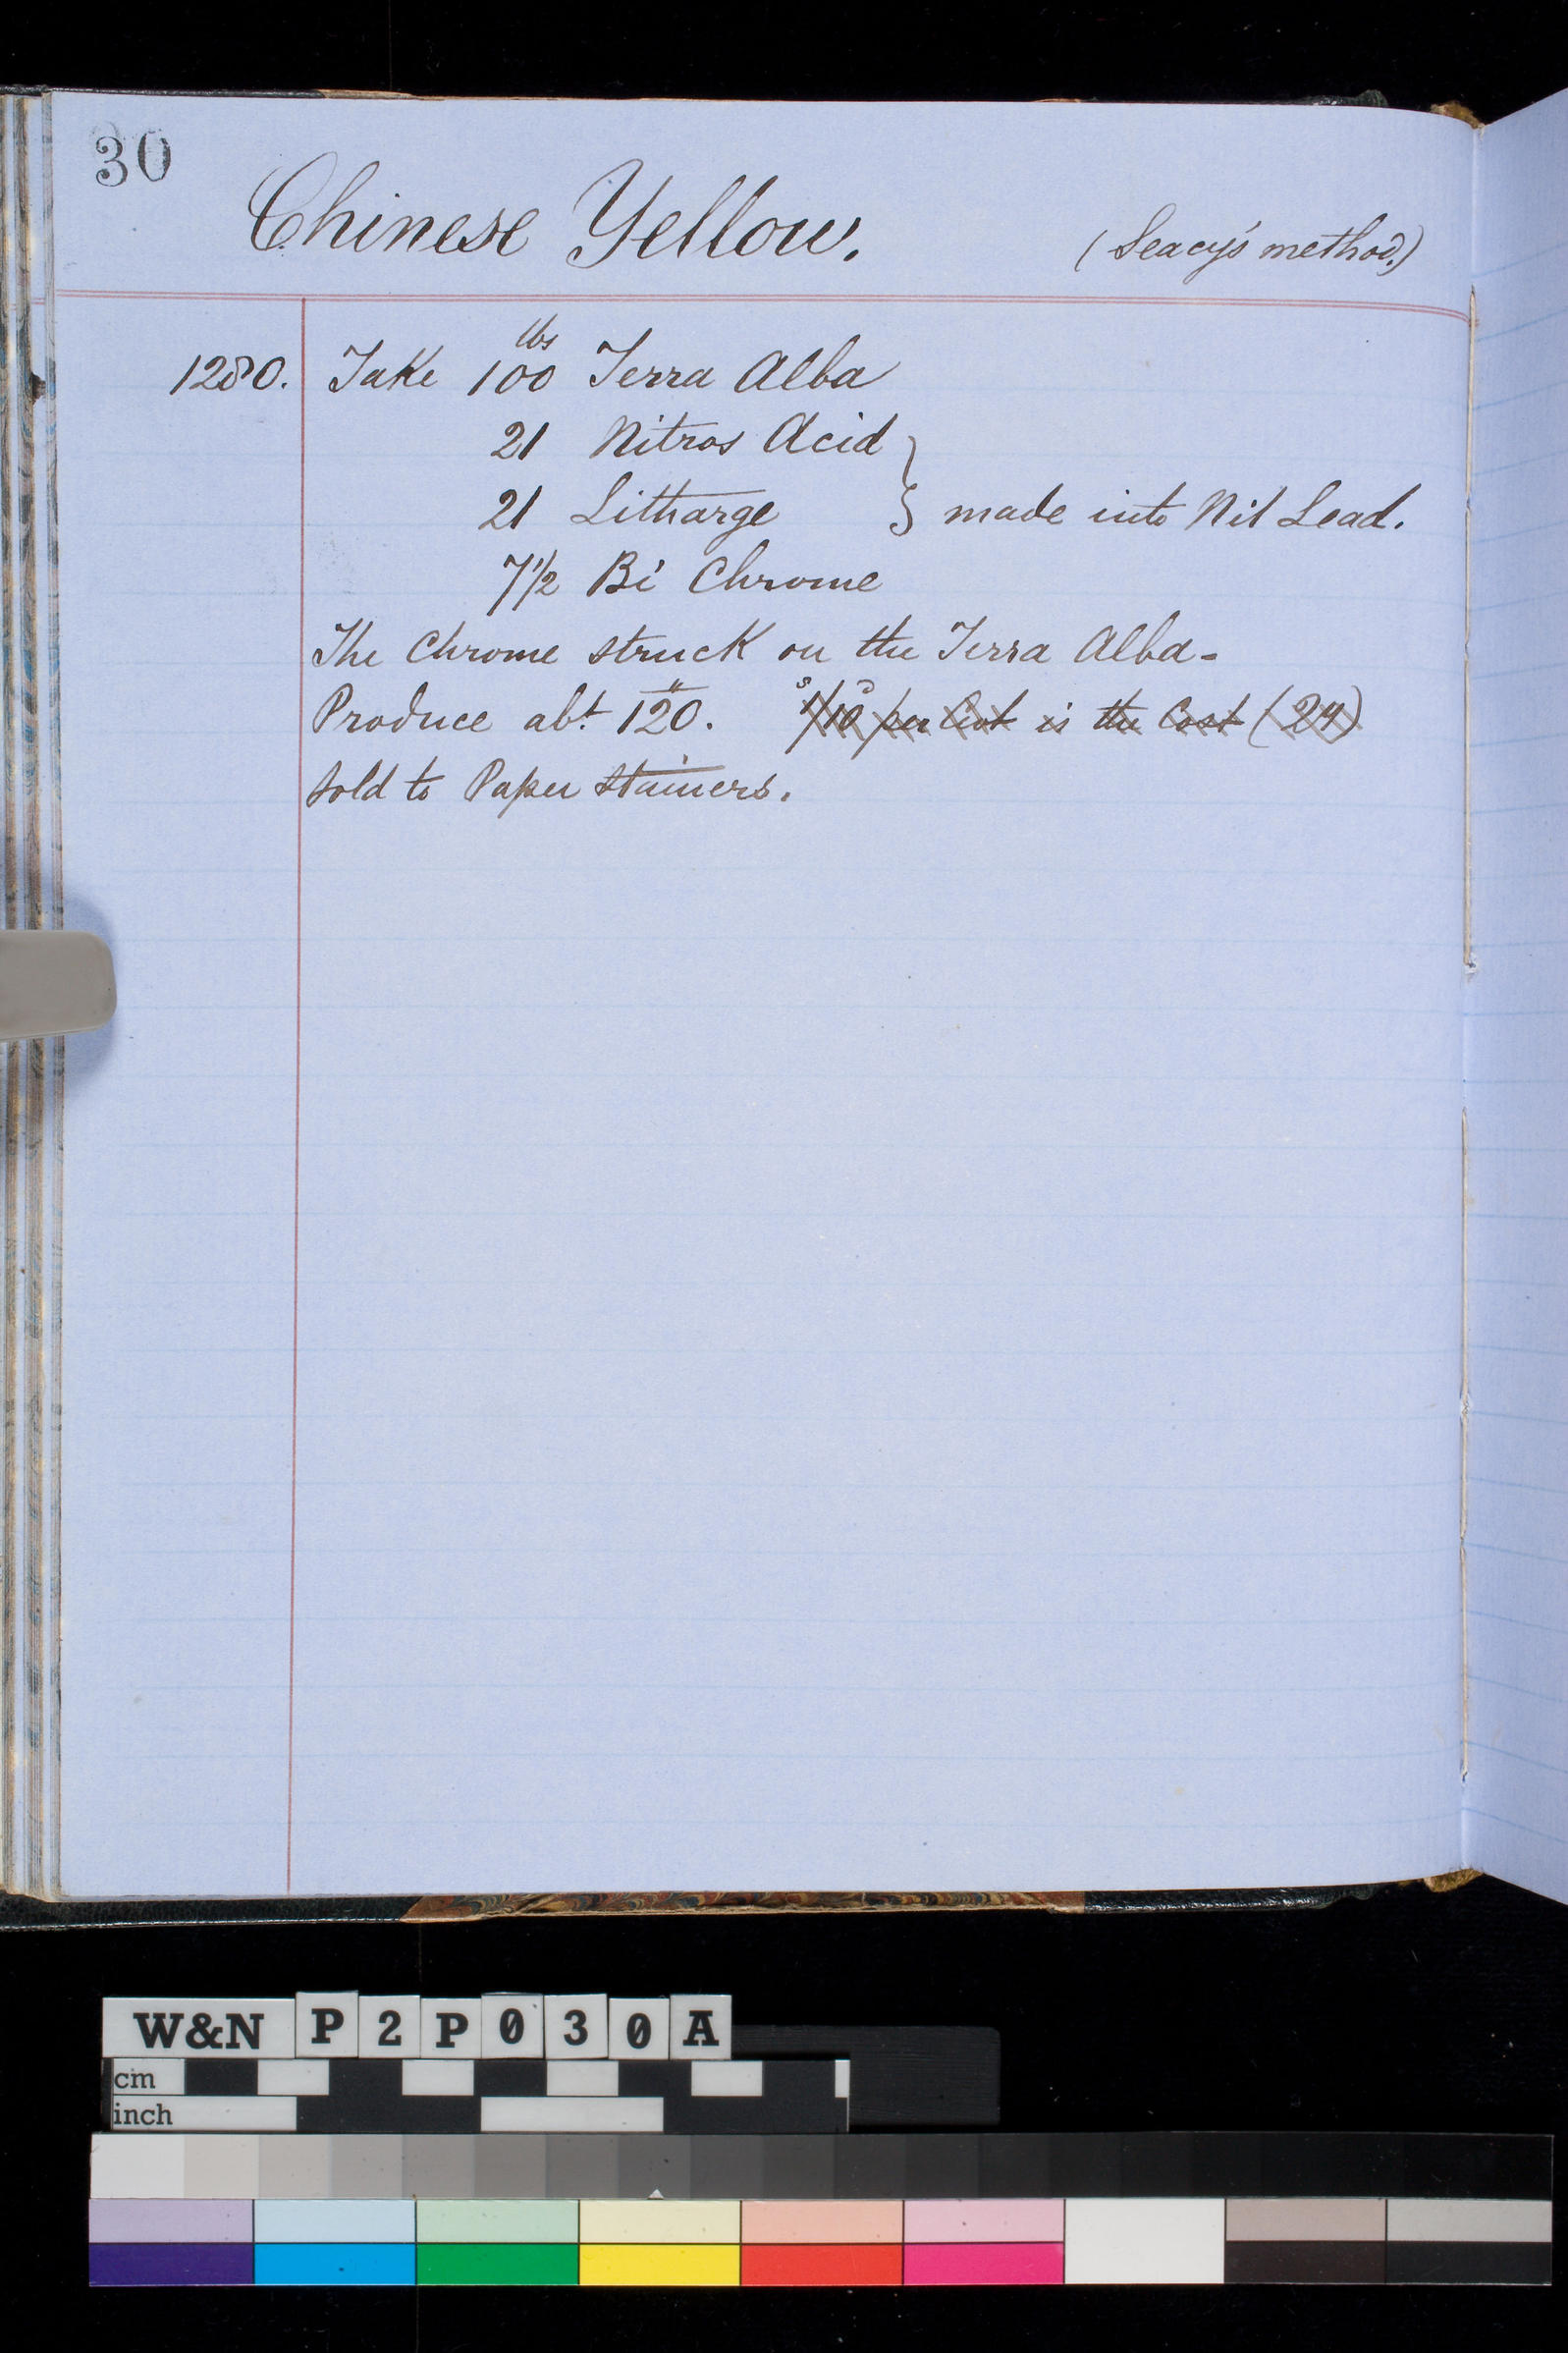 30
Chinese Yellow. (Seacy's method.)
lbs
1280. Take 100 Terra Alba
21 Nitros Acid
21 Litharge } made into Nit Lead.
7 1/2 Bi Chrome
The Chrome struck on the Terra Alba-
Produce abt. 120. per Cwt is the Cost (24)
sold to Paper stainers.
W&N P2P030A
cm
inch